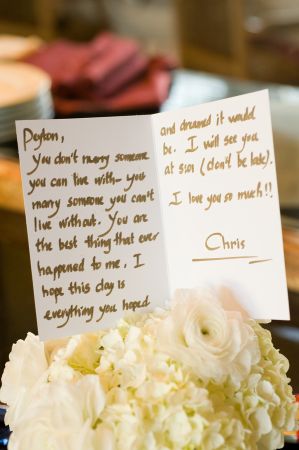 Peyton,
You don't marry someone
you can live with - you
marry someone you can't
live without. You are
the best thing that ever
happened to me. I
hope this day is
everything you hoped
and dreamed it would
be. I will see you
at 5:01 (don't be late).
I love you so much!!
Chris